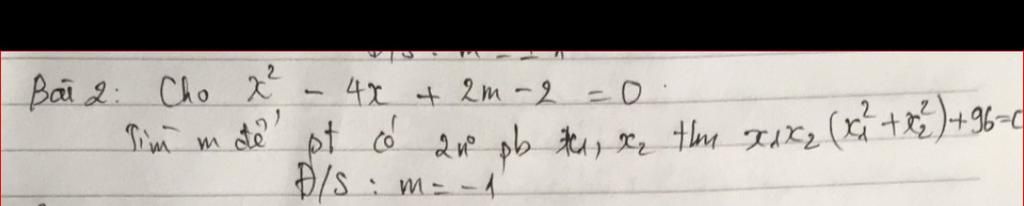 Bài 2: Cho x² - 4x + 2m - 2 = 0.
Tìm m để pt có 2n⁰ pb x₁, x₂ tm x₁x₂(x₁² + x₂²) + 96 = 0
Đ/S : m = -1